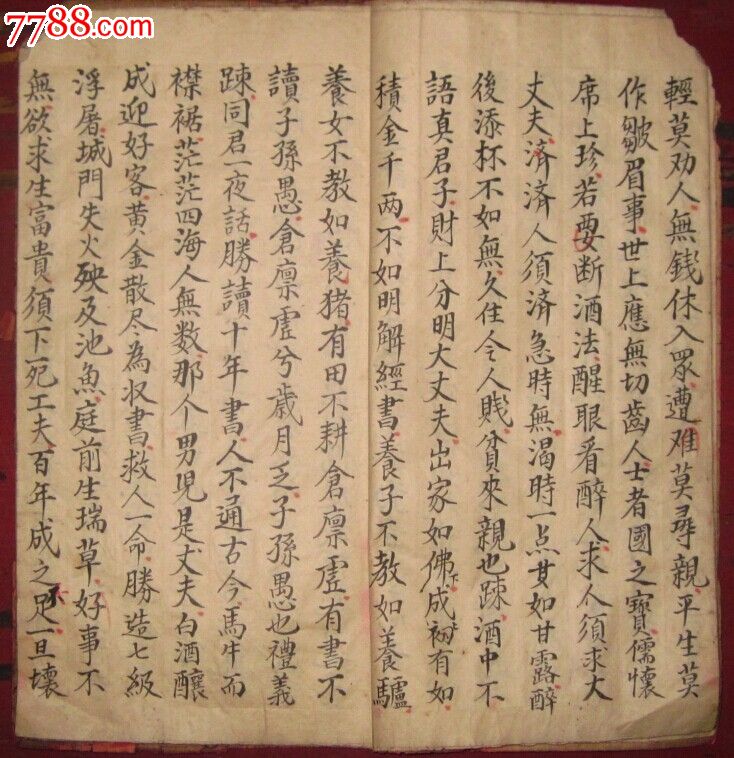 7788.com
輕莫劝人無錢休入眾遭难莫尋親平生莫
作皺眉事世上應無切齒人士者國之寶儒懷
席上珍若要断酒法醒眼看醉人求人須求大
丈夫済済人須済急時無渴時一点甘如甘露醉
後添杯不如無久住令人賎貧來親也踈酒中不
語真君子財上分明大丈夫出家如佛下成初有如
積金千两不如明解經書養子不教如養驢
養女不教如養猪有田不耕倉廪虚有書不
讀子孫愚倉廪虚兮歳月乏子孫愚也禮義
踈同君一夜話勝讀十年書人不通古今馬牛而
襟裾茫茫四海人無数那个男児是丈夫白酒釀
成迎好客黄金散尽為収書救人一命勝造七級
浮屠城門失火殃及池魚庭前生瑞草好事不
無欲求生富貴須下死工夫百年成之不足一旦壊